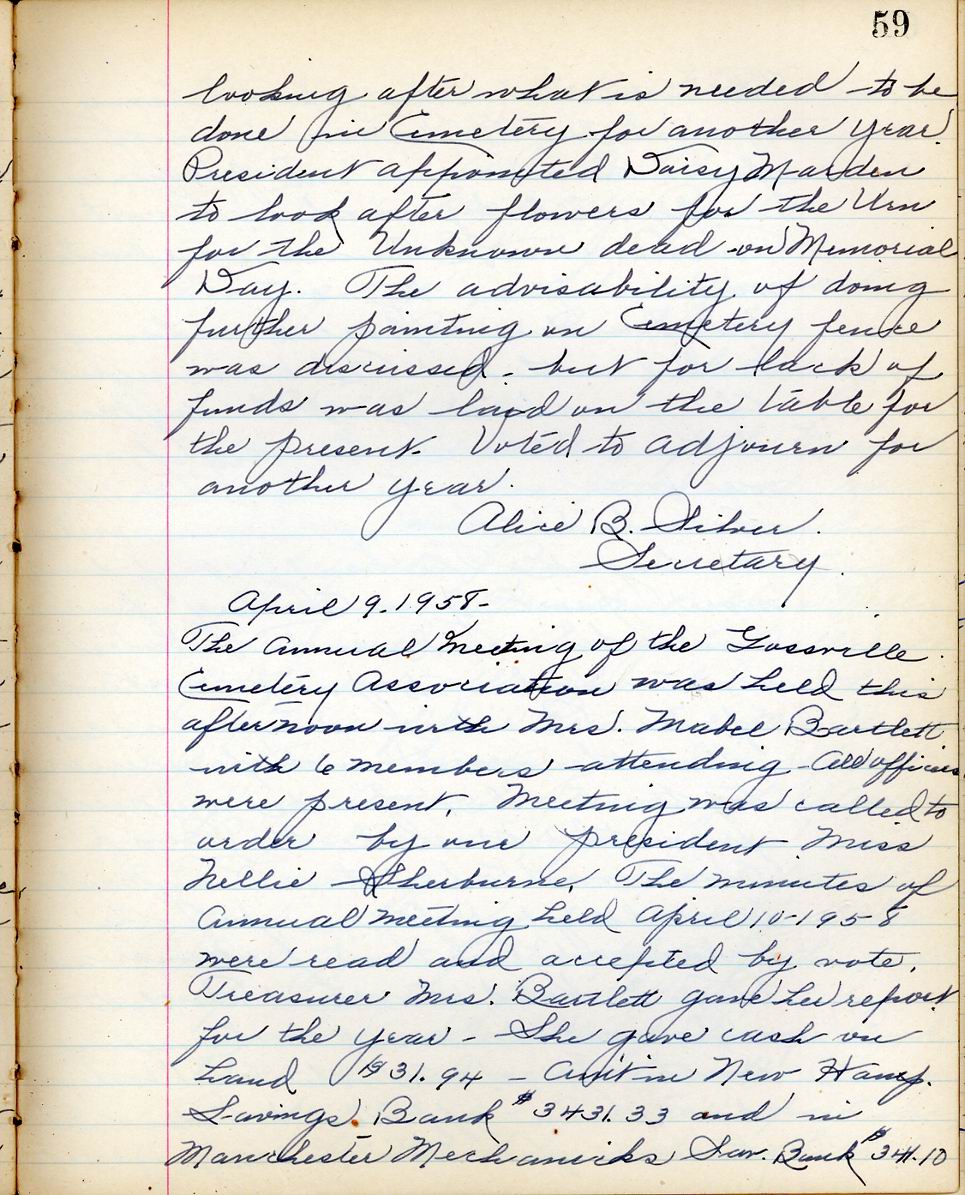 59
looking after what is needed to be
done in Cemetery for another year.
President appointed Daisy Marden
to look after flowers for the Urn
for the Unknown dead on Memorial
Day. The advisability of doing
further painting on Cemetery fence
was discussed - but for lack of
funds was laid on the table for
the present. Voted to adjourn for
another year.
Alice B. Silver.
Secretary.
April 9. 1958-
The Annual Meeting of the Gossville
Cemetery Association was held this
afternoon with Mrs. Mabel Bartlett
with 6 members attending - All officers
were present. Meeting was called to
order by our president Miss
Nellie Sherburne. The minutes of
Annual meeting held April 10-1958
were read and accepted by vote.
Treasurer Mrs. Bartlett gave her report
for the year - She gave cash on
hand $31.94 - Am't in New Hamp.
Savings Bank $3431.33 and in
Manchester Mechanicks Sav. Bank $341.10